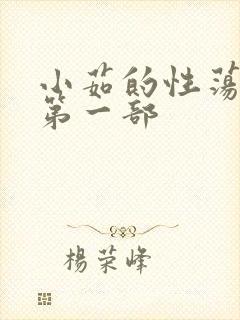 小茹的性荡
第一部
杨荣峰